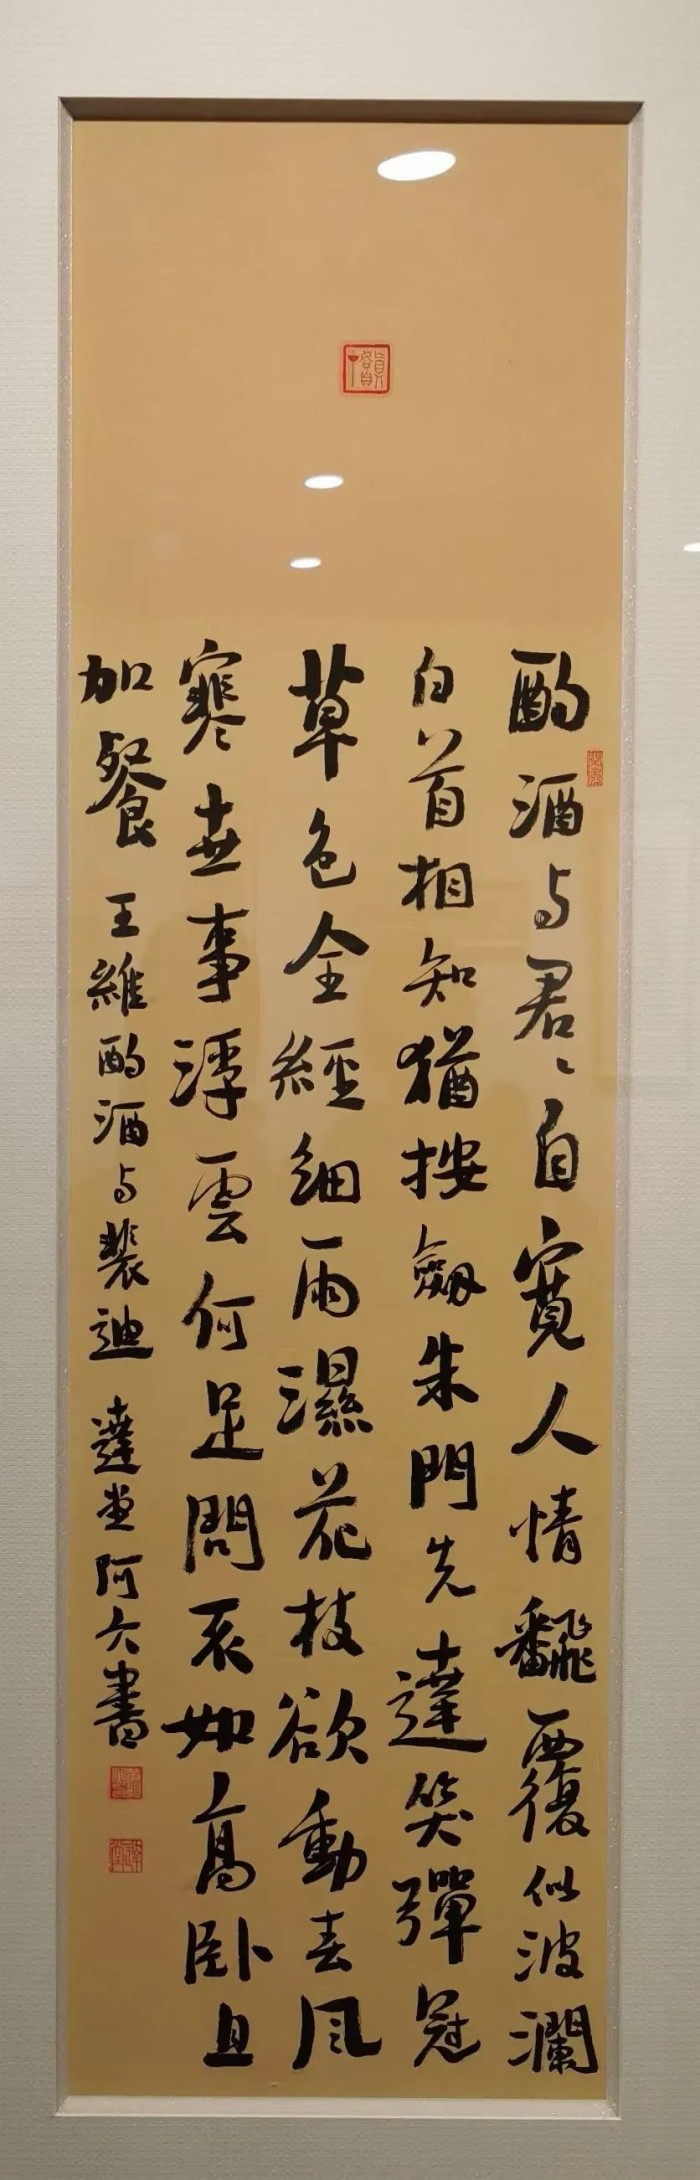 酌酒与君〻自寬人情飜覆似波瀾
白首相知猶按劔朱門先達笑彈冠
草色全經細雨濕花枝欲動春風
寒世事浮雲何足問不如高卧且
加餐 王維酌酒与裴迪 達堂阿六書